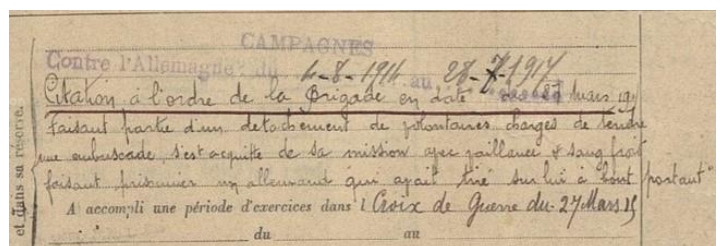 CAMPAGNES
Contre l'Allemagne: du 4-8-1914 au 28-7-1917
Citation à l'ordre de la Brigade en date du 27 Mars 19
Faisant partie d'un detachement de volontaires charges de tendre
une embuscade, s'est acquitté de sa mission avec vaillance & sang froid
faisant prisonnier un allemand qui avait tiré sur lui à bout portant"
A accompli une période d'exercices dans l Croix de Guerre du 27 Mars 15
du au
et dans sa réserve.